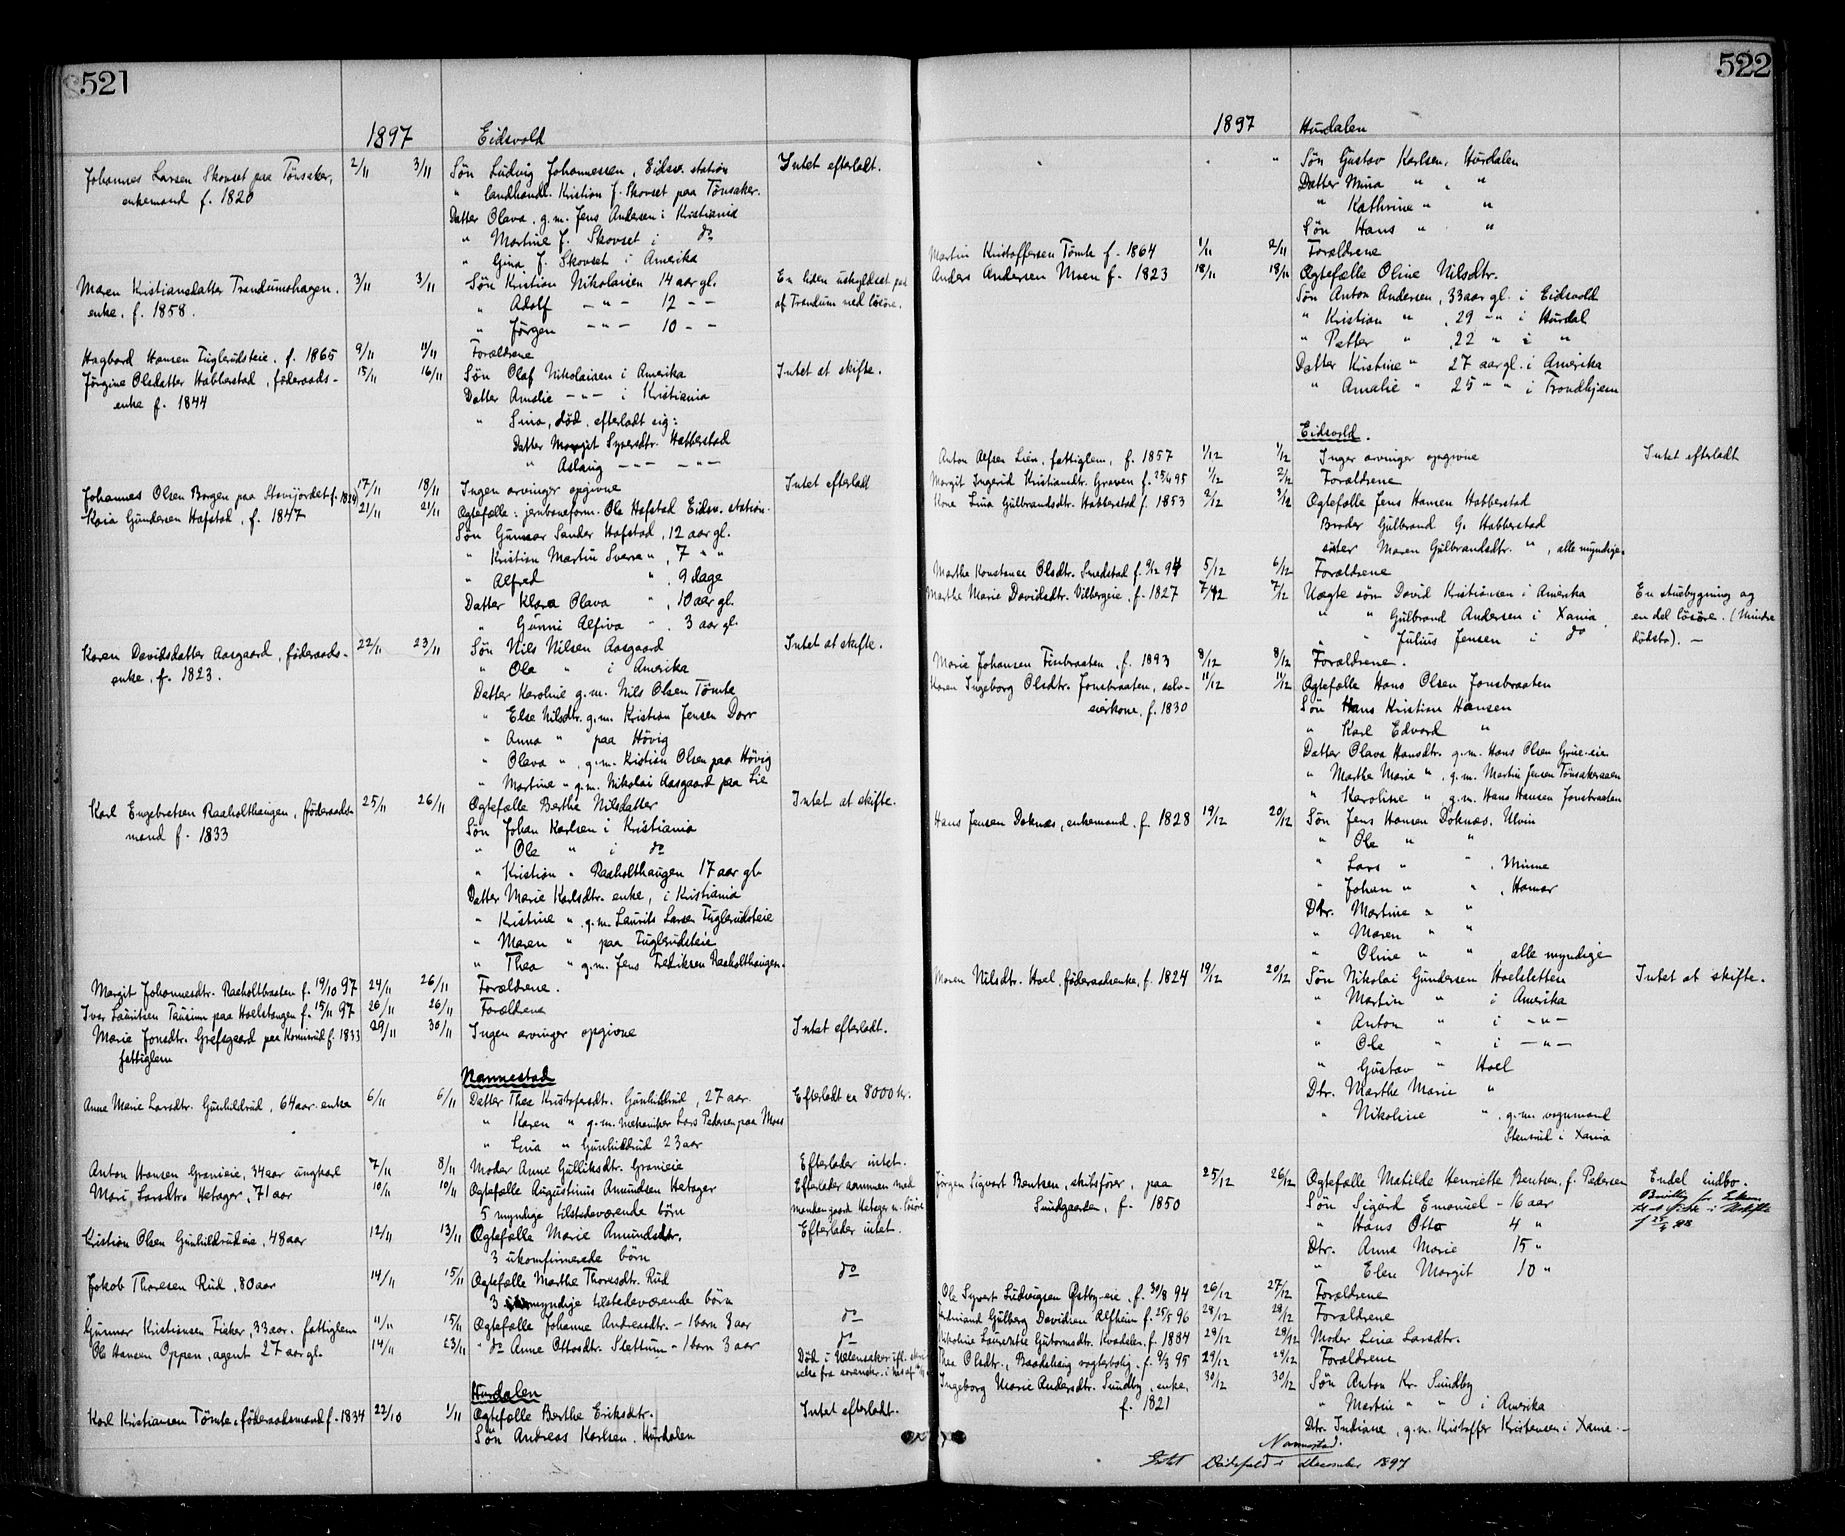 521
1897 Eidsvold
Johannes Larsen Skovset paa Tönsaker, 2/11 3/11 Sön Ludvig Johannessen, Eidsv. station Intet efterladt.
enkemand f. 1820 " landhandl. Kristian J. Skovset paa Tönsaker.
Datter Olava, g.m. Jens Andersen i Kristiania
" Martine J. Skovset i do
" Gina J. Skovset i Amerika
Maren Kristiansdatter Trandumshagen. 3/11 3/11 Sön Kristian Nikolaisen 14 aar gl. En liden uskyldset part
enke. f. 1858. " Adolf — " — 12 — — af Trandum med lösöre.
" Jörgen — " — 10 — —
Hagbard Hansen Fuglerudseie. f. 1865 9/11 11/11 Forældrene
Jörgine Olsdatter Habberstad, föderaads- 15/11 16/11 Sön Olaf Nikolaisen i Amerika Intet at skifte.
enke f. 1844 Datter Amalie — " — i Kristiania
" Sina, död, efterladt sig:
Datter Margit Syversdtr. Habberstad
" Aslaug — " — — " —
Johannes Olsen Borgen paa Stavijordet f. 1824 17/11 18/11 Ingen arvinger opgivne Intet efterladt
Karia Gundersen Hafstad, f. 1847 21/11 21/11 Ægtefælle: jernbaneform. Ole Hafstad Eidsv. station.
Sön Gunnar Sander Hafstad, 12 aar gl.
" Kristian Martin Sverre " , 7 " "
" Alfred " , 9 dage
Datter Klara Olava " , 10 aar gl.
" Gunni Alfiva " . 3 aar gl.
Karen Davidsdatter Aasgaard, föderaads- 22/11 23/11 Sön Nils Nilsen Aasgaard Intet at skifte.
enke. f. 1823. " Ole " i Amerika
Datter Karoline g.m. Nils Olsen Tömte
" Else Nilsdtr. g.m. Kristian Jensen Dorr
" Anna " paa Hövig
" Olava ", g.m. Kristian Olsen paa Hövig
" Martine " g.m. Nikolai Aasgaard paa Lie
Karl Engebretsen Raaholthaugen, föderaads- 25/11 26/11 Ægtefælle Berthe Nilsdatter Intet at skifte.
mand f. 1833 Sön Johan Karlsen i Kristiania
" Ole " i do
" Kristian " Raaholthaugen 17 aar gl.
Datter Marie Karlsdtr. enke, i Kristiania
" Kristine " g.m. Laurits Larsen Fuglerudseie
" Maren " paa Fuglerudseie
" Thea " g.m. Jens Fredriksen Raaholthaugen.
Margit Johannesdtr. Raaholtbraaten f. 19/10 97 24/11 26/11 Forældrene.
Iver Lauritsen paa Hoelstangen f. 15/11 97 26/11 26/11 Forældrene
Marie Jonsdtr. Grefsgaard paa f. 1833 29/11 30/11 Ingen arvinger opgivne Intet efterladt.
fattiglem
Nannestad
Anne Marie Larsdtr. Gunhildrud, 64 aar. enke 6/11 6/11 Datter Thea Kristofersdtr. Gunhildrud, 27 aar. Efterladt ca 8000 kr.
" Karen " g.m. mekaniker Lars Pedersen paa Moss
" Lina " Gunhildrud 23 aar
Anton Hansen Granieie, 34 aar ungkarl 7/11 8/11 Moder Anne Gulliksdtr. Granieie Efterlader intet.
Mari Larsdtr. Hetager, 71 aar 10/11 10/11 Ægtefælle Augustinus Amundsen Hetager Efterlader sammen med
5 myndige tilstedeværende börn manden gaard Hetager m. lösöre
Kristian Olsen Gunhildrudeie, 48 aar 12/11 13/11 Ægtefælle Marie Amundsdtr. Efterlader intet.
3 ukonfirmerede börn
Jakob Thoresen Rud, 80 aar 14/11 15/11 Ægtefælle Marthe Thoresdtr. Rud do
3 myndige tilstedeværende börn
Gunnar Kristiansen Fisker, 33 aar. fattiglem 11/11 15/11 Ægtefælle Johanne Andreasdtr. — 1 barn 3 aar do
Ole Hansen Oppen, agent 27 aar gl. 14/11 23/11 " do Anne Ottosdtr. Slettum — 1 barn 3 aar do
Död i Ullensaker ifl.
Hurdalen
Karl Kristiansen Tömte, föderaadsmand f. 1834 22/10 1/11 Ægtefælle Berthe Eriksdtr. Intet efterladt.
Sön Andreas Karlsen. Hurdalen
522
1897 Hurdalen
" " Sön Gustav Karlsen. Hurdalen
Datter Mina " "
" Kathrine " "
Sön Hans " "
Martin Kristoffersen Tömte f. 1864 1/11 2/11 Forældrene
Anders Andersen Moen f. 1823 18/11 18/11 Ægtefælle Oline Nilsdtr.
Sön Anton Andersen, 33 aar gl. i Eidsvold
" Kristian " , 29 — " i Hurdal
" Petter " , 22 " i "
Datter Kristine " 27 aar gl. i Amerika
" Amalie " 25 " " i Trondhjem
Eidsvold.
Anton Alfsen Lien, fattiglem, f. 1857 1/12 1/12 Ingen arvinger opgivne Intet efterladt
Margit Ingerid Kristiansdtr. Graven f. 25/6 95 1/12 2/12 Forældrene
Kone Lina Gulbrandsdtr. Habberstad f. 1853 2/12 3/12 Ægtefælle Jens Hansen Habberstad
Broder Gulbrand G. Habberstad
söster Maren Gulbrandsdtr. " , alle myndige.
Marthe Konstance Olsdtr. Smedstad f. 9/12 94 5/12 6/12 Forældrene
Marthe Marie Davidsdtr. Vilbergeie, f. 1827 7/12 7/12 Uægte sön David Kristiansen i Amerika En stuebygning og
" " Gulbrand Andersen i Xania, en del lösöre. (Mindre
" " Julius Jensen i do dödsbo). —
Marie Johansen Finbraaten, f. 1893 8/12 8/12 Forældrene.
Karen Ingeborg Olsdtr. Jonsbraaten, selv- 11/12 11/12 Ægtefælle Hans Olsen Jonsbraaten
eierkone, f. 1830 Sön Hans Kristian Hansen
" Karl Edvard "
Datter Olava Hansdtr. g.m. Hans Olsen Grue-eie
" Marthe Marie " , g.m. Martin Jensen Tönsakeraaen
" Karoline " g.m. Hans Hansen Jonsbraaten
Hans Jensen Doknæs, enkemand, f. 1828 19/12 20/12 Sön Jens Hansen Doknæs. Ulvin
" Ole " "
" Lars " " . Minne
" Johan " " , Hamar
Dtr. Martine " "
" Maren " "
" Oline " " , alle myndige
Maren Nilsdtr. Hoel, föderaadsenke, f. 1824 19/12 20/12 Sön Nikolai Gundersen Hoelsletten Intet at skifte.
" Martin " i Amerika
" Anton " i — " —
" Ole " i — " —
" Gustav " Hoel
Dtr. Marthe Marie "
" Nikoline " , g.m. vognmand
Stensrud i Xania
Jörgen Sigvart Bentsen, skibsförer, paa 25/12 26/12 Ægtefælle Matilde Henriette Bentsen, f. Pedersen Endel indbo.
Sundgaarden, f. 1850 Sön Sigurd Emanuel — 16 aar Bevilling for Enken
" Hans Otto 4 " til at sidde i Uskifte
Dtr. Anna Marie 15 "
" Elen Margit 10 "
Ole Syvert Ludvigsen Østby-eie, f. 30/8 94 26/12 27/12 Forældrene
Ferdinand Gulberg Davidsen Alfheim f. 25/5 96 28/12 28/12 Forældrene
Nikoline Laurentse Gutormsdtr. Kvadalen, f. 1884 29/12 29/12 Moder Lina Larsdtr.
Thea Olsdtr., Baadshaug vogterbolig, f. 9/3 95 29/12 29/12 Forældrene
Ingeborg Marie Andersdtr. Sundby, enke, 30/12 30/12 Sön Anton Kr. Sundby
f. 1821 " Martin " " i Amerika
Dtr. Indiane, g.m. Kristoffer Kristensen i Xania.—
Nannestad.
Intet Dödsfald i december 1897